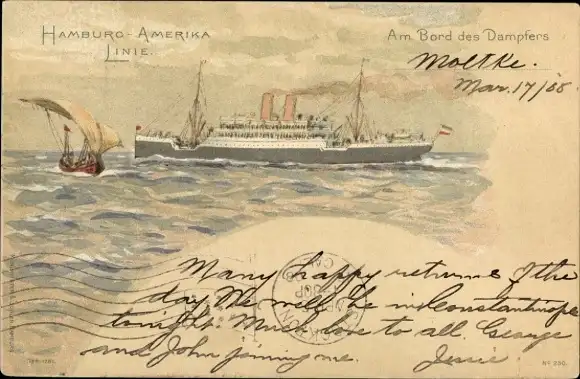 Hamburg-Amerika
Linie.
Am Bord des Dampfers
Moltke.
Mar. 17/08
Many happy returns of the
day. We will be in Constantinople
tonight. Much love to all. George
and John joining me. Jessie.
No 230.